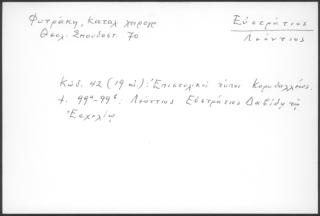 Φυτράκη, Καταλ χειρογ
Θεολ. Σπουδαστ. 70
Εὐστράτιος
Λεόντιος
Κώδ. 42 (19 αἰ.): Ἐπιστολικοὶ τύποι Κορυδαλλέως.
f. 99α-99β: Λεόντιος Εὐστράτιος Δαβὶδ τῷ